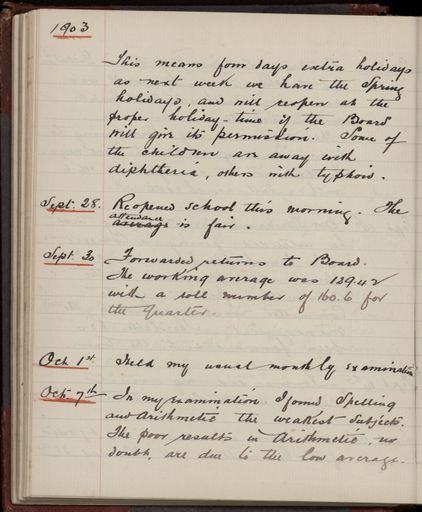 1903
This means four days extra holidays
as next week we have the Spring
holidays, and will reopen at the
proper holiday-time if the Board
will give its permission. Some of
the children are away with
diphtheroa, others with typhoid.
Sept. 28. Reopened school this morning. The
attendance
average is fair.
Sept. 30 Forwarded returns to Board.
The working average was 129.42
with a roll number of 160.6 for
the quarter.
Oct 1st. Held my usual monthly examination
Oct. 7th In my examination I found Spelling
and Arithmetic the weakest subjects.
The poor results in Arithmetic, no
doubt, are due to the low average.